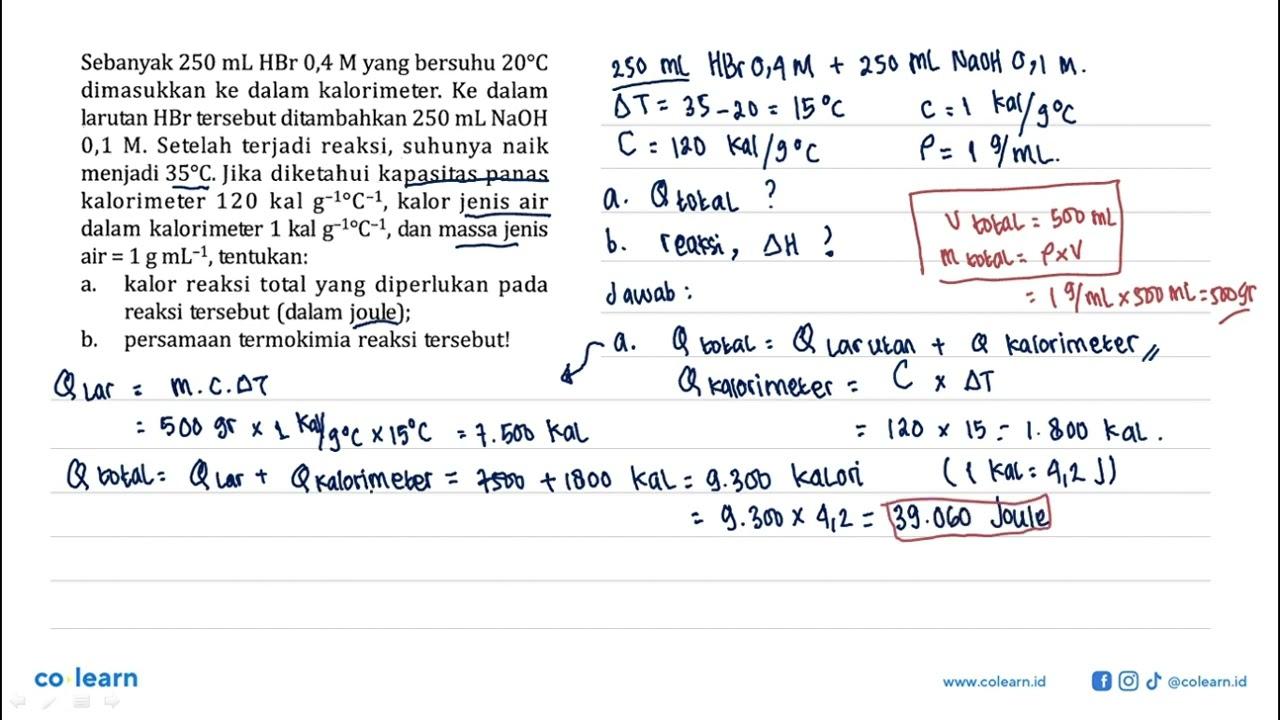 Sebanyak 250 mL HBr 0,4 M yang bersuhu 20°C
dimasukkan ke dalam kalorimeter. Ke dalam
larutan HBr tersebut ditambahkan 250 mL NaOH
0,1 M. Setelah terjadi reaksi, suhunya naik
menjadi 35°C. Jika diketahui kapasitas panas
kalorimeter 120 kal g⁻¹°C⁻¹, kalor jenis air
dalam kalorimeter 1 kal g⁻¹°C⁻¹, dan massa jenis
air = 1 g mL⁻¹, tentukan:
a. kalor reaksi total yang diperlukan pada
reaksi tersebut (dalam joule);
b. persamaan termokimia reaksi tersebut!
250 mL HBr 0,4 M + 250 mL NaOH 0,1 M.
ΔT = 35 - 20 = 15°C c = 1 kal/g°C
C = 120 kal/g°C ρ = 1 g/mL.
a. Q total ?
b. reaksi, ΔH ?
V total = 500 mL
m total = ρ x V
= 1 g/mL x 500 mL = 500 gr
Jawab :
a. Q total = Q larutan + Q kalorimeter //
Q kalorimeter = C x ΔT
= 120 x 15 = 1.800 kal.
Q lar = m.c.ΔT
= 500 gr x 1 kal/g°C x 15°C = 7.500 kal
Q total = Q lar + Q kalorimeter = 7500 + 1800 kal = 9.300 kalori (1 kal = 4,2 J)
= 9.300 x 4,2 = 39.060 Joule
co learn
www.colearn.id
@colearn.id